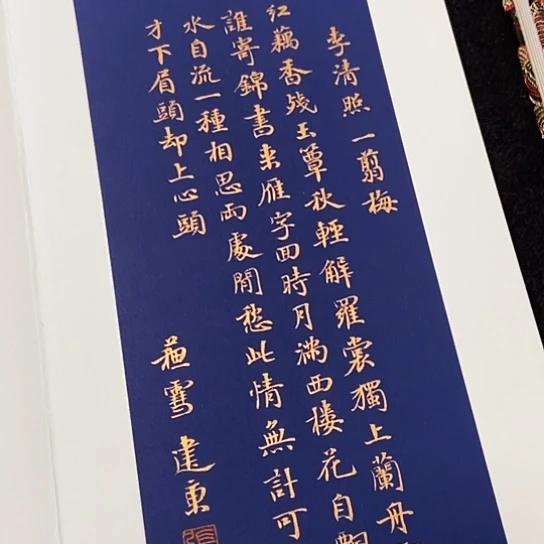 李清照 一翦梅
红藕香残玉簟秋輕解羅裳獨上蘭舟
誰寄錦書来雁字囬時月滿西樓花自飄
水自流一種相思兩處閒愁此情無計可
才下眉頭却上心頭
雪建東